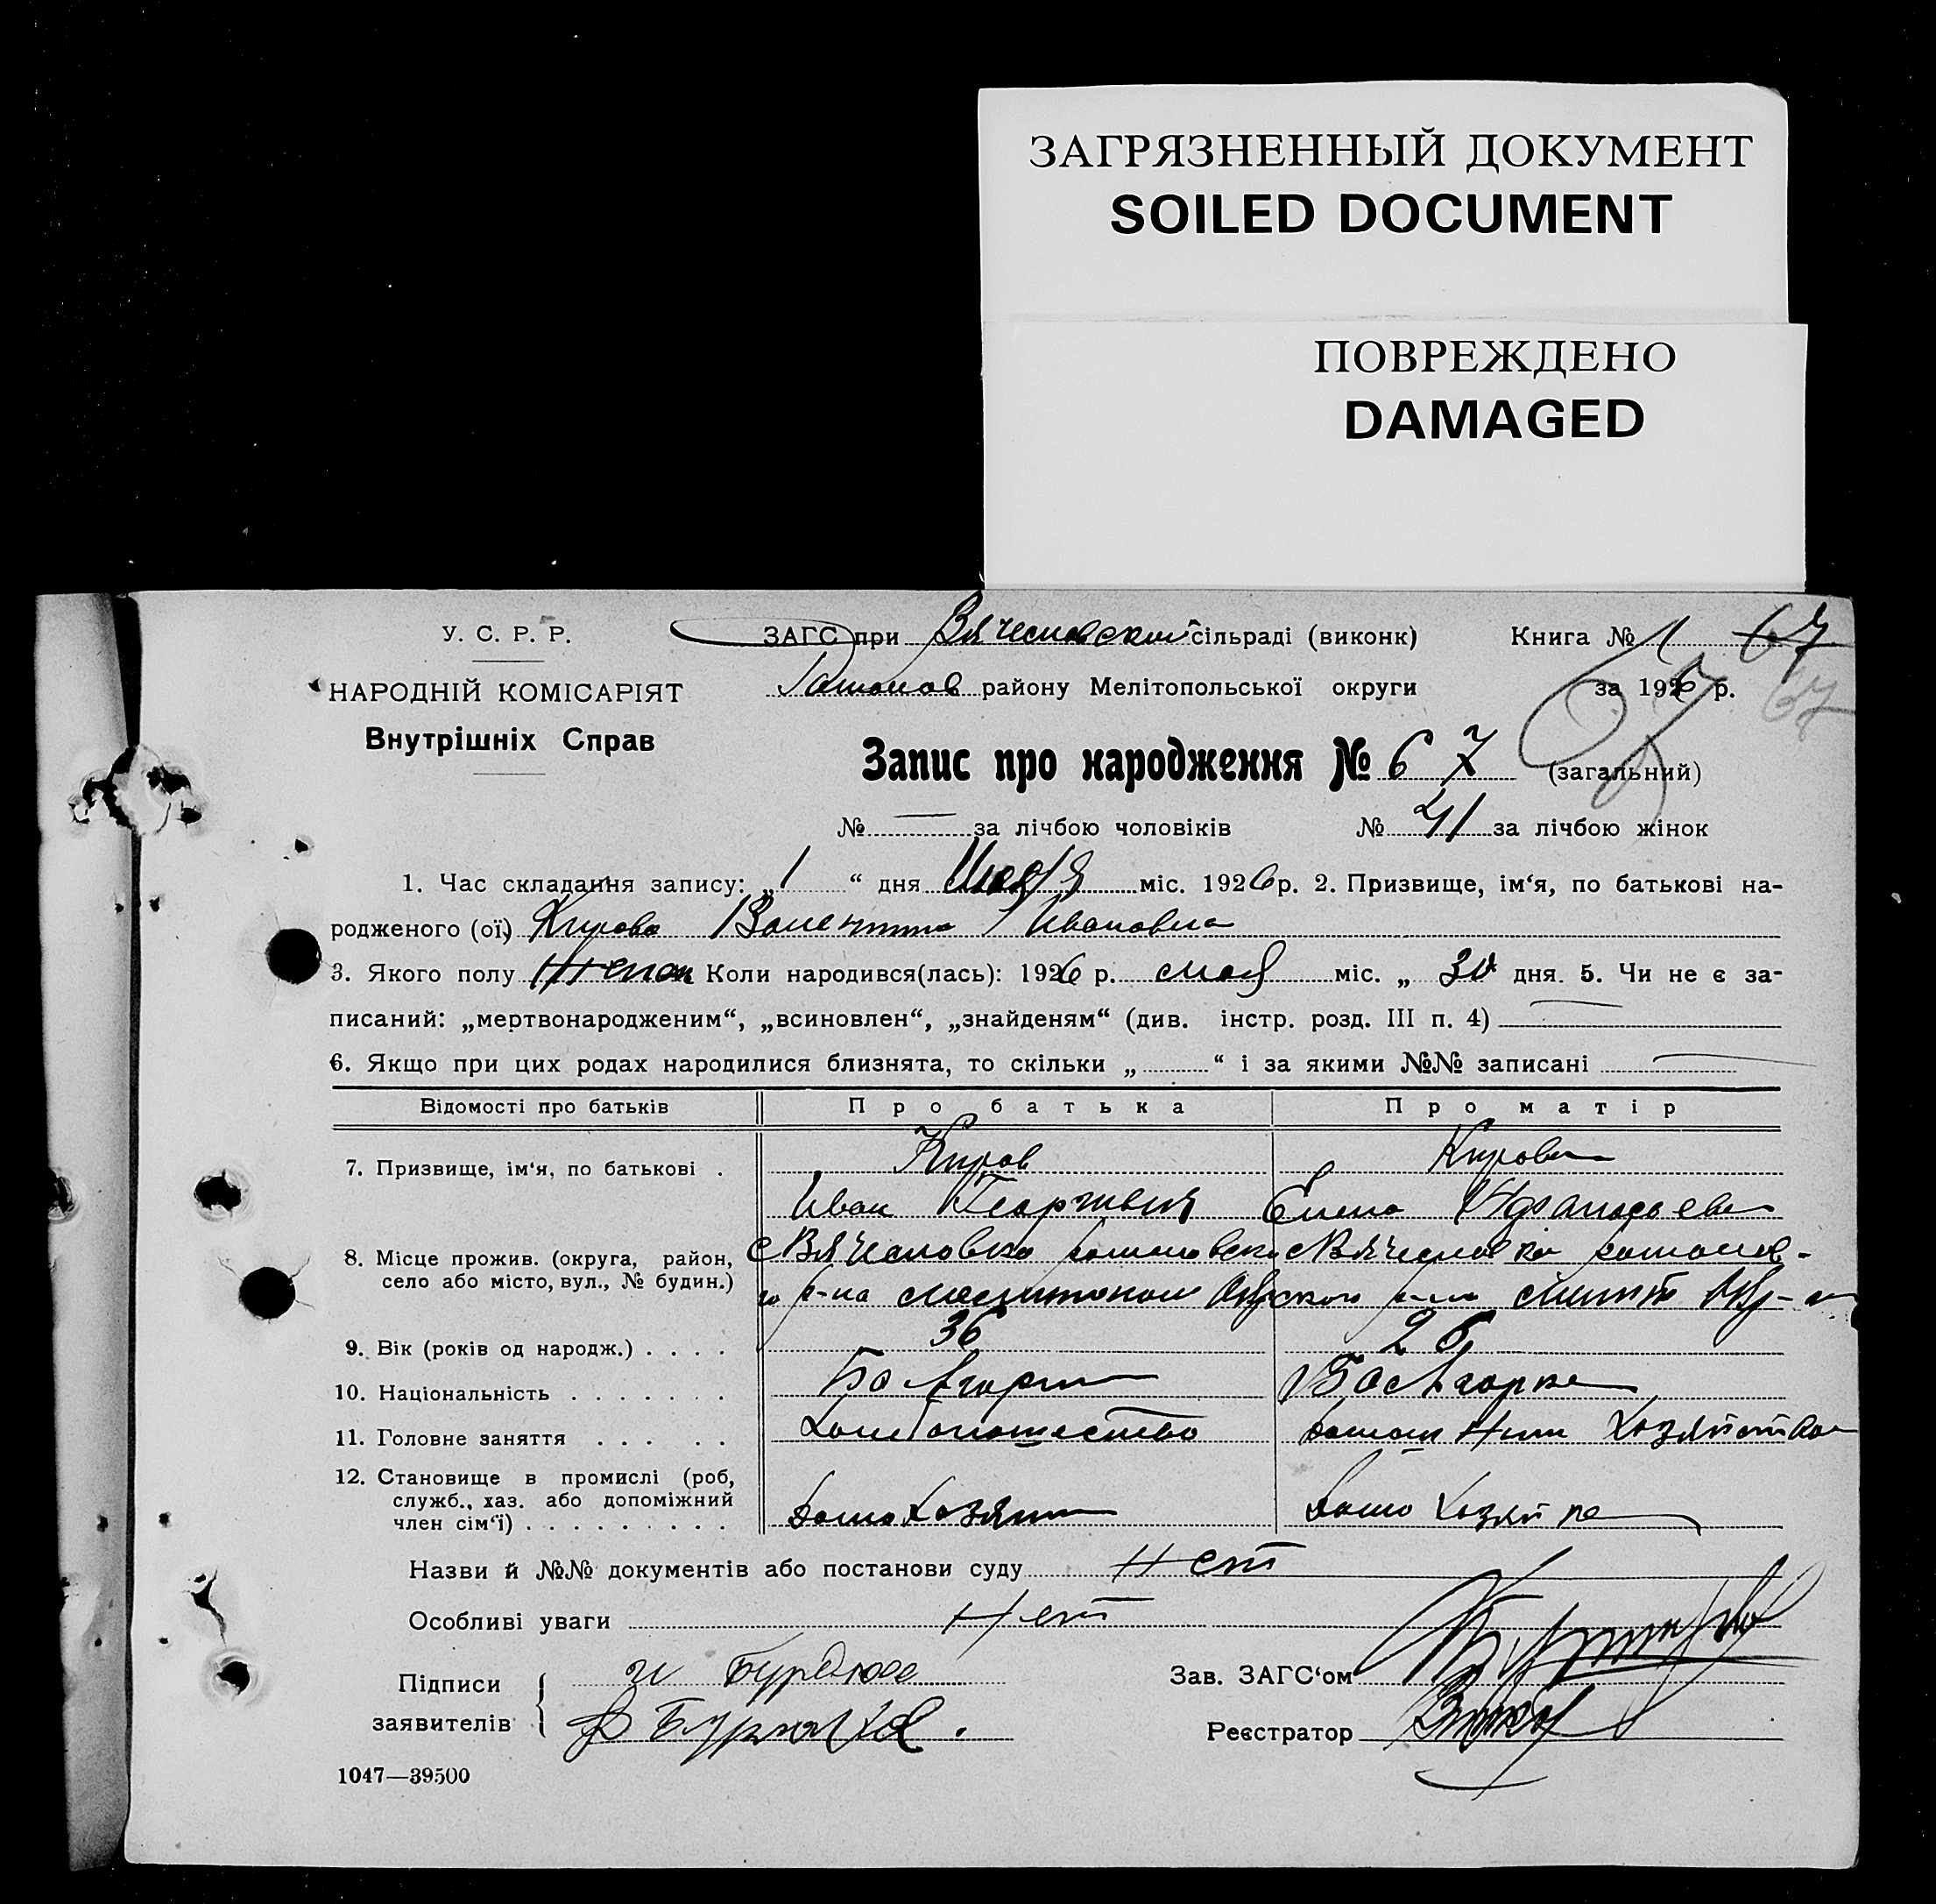 ЗАГРЯЗНЕННЫЙ ДОКУМЕНТ
SOILED DOCUMENT
ПОВРЕЖДЕНО
DAMAGED
У. С. Р. Р.
НАРОДНІЙ КОМІСАРІЯТ
Внутрішніх Справ
ЗАГС при Вячесловском сільраді (виконк)
Романов району Мелітопольської округи
Книга № 1 67
за 1926 р. 67
67
Запис про народження № 67 (загальний)
№ — за лічбою чоловіків № 41 за лічбою жінок
1. Час складання запису: „ 1 “ дня Июня міс. 1926 р. 2. Призвище, ім‘я, по батькові на-
родженого (ої) Кирова Валентина Ивановна
3. Якого полу Женск Коли народився(лась): 1926 р. мая міс. „ 30 дня. 5. Чи не є за-
писаний: „мертвонародженим“, „всиновлен“, „знайденям“ (див. інстр. розд. III п. 4) —
6. Якщо при цих родах народилися близнята, то скільки „ “ і за якими №№ записані —
Відомості про батьків Про батька Про матір
7. Призвище, ім‘я, по батькові . Киров Кирова
Иван Георгиевич Елена Афанасьев
8. Місце прожив. (округа, район, с Вячеславка романовско с Вячеславка романов-
село або місто, вул., № будин.) го р-на мелитопол Окр ского р-на мелит Окр-
9. Вік (років од народж.) . . . . 36 26
10. Національність . . . . . . . Болгарин Болгарка
11. Головне заняття . . . . . Хлебопашество домашн Хозяйство
12. Становище в промислі (роб,
служб., хаз. або допоміжний
член сім‘ї) . . . . . . . . . домохозяин домохозяйка
Назви й №№ документів або постанови суду Нет
Особливі уваги Нет
Підписи
заявителів
Зав. ЗАГС‘ом
Реєстратор
1047—39500